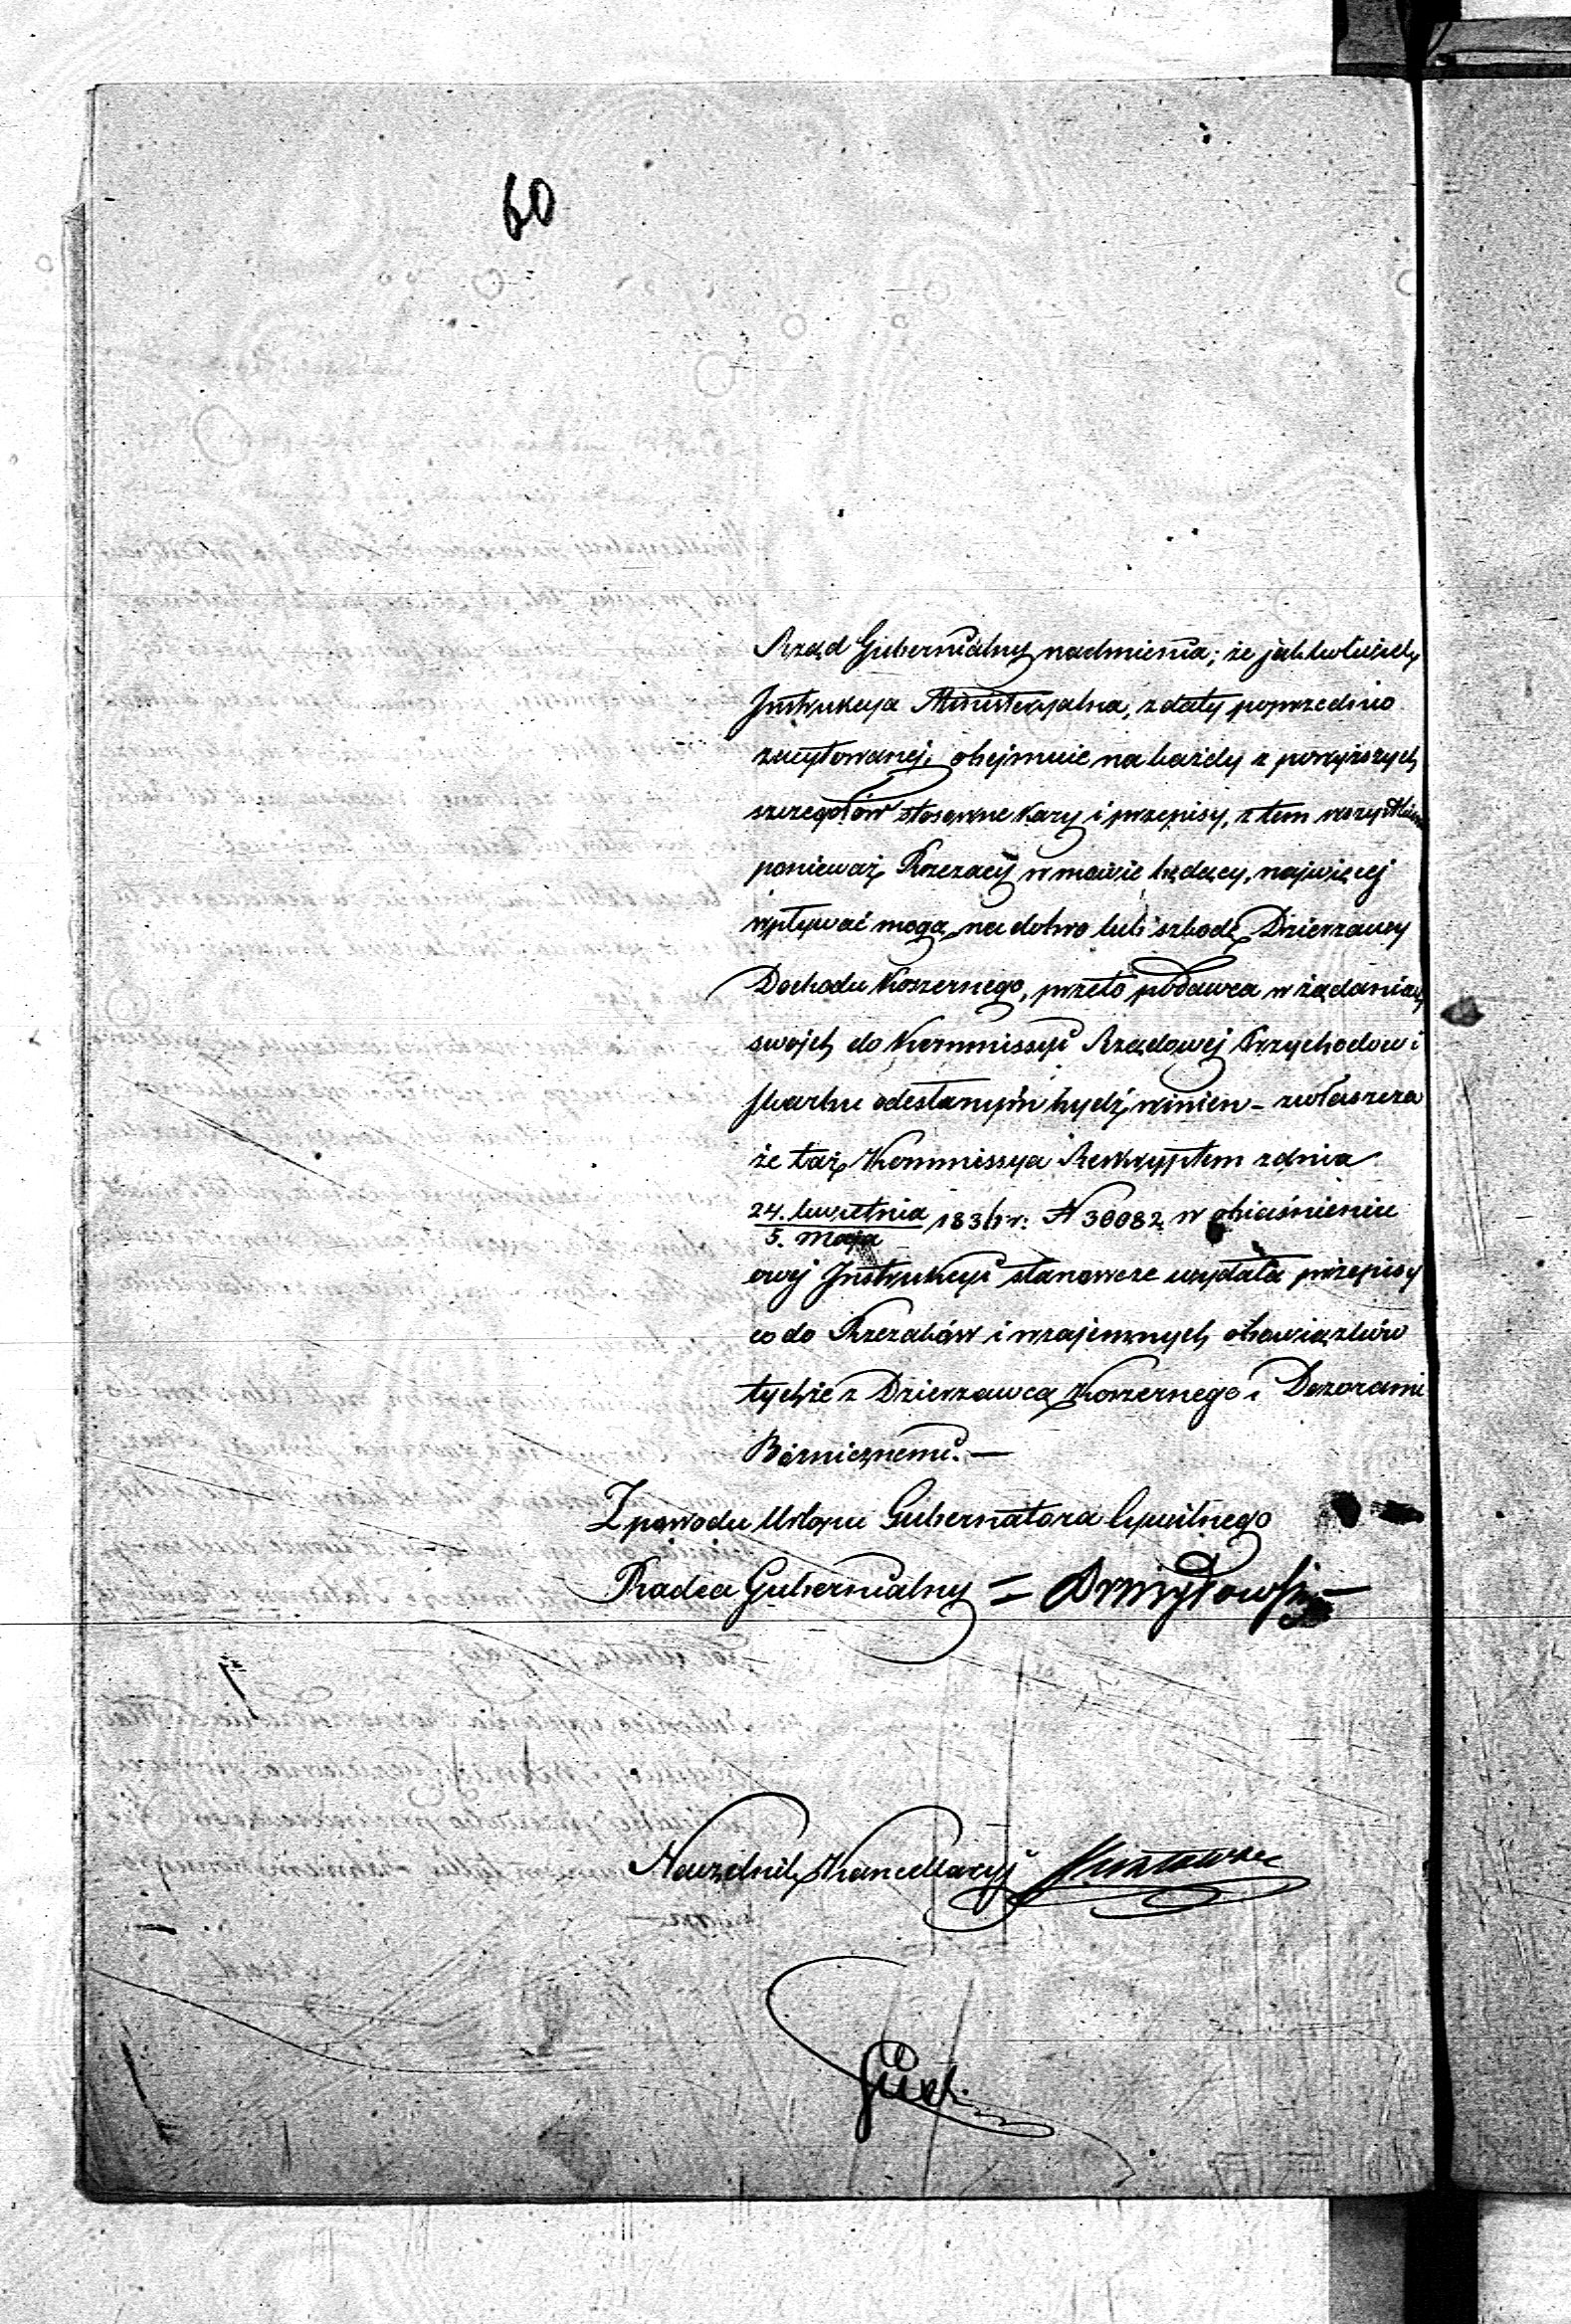 60
Rząd Gubernialny nadmienia; że jakkolwiek
Instrukcya Ministeryalna, z daty poprzednio
zacytowanej, obejmuie na każdy z powyższych
szczegółów stosowne kary i przepisy, z tem wszystkiem
ponieważ Rzezacy w mowie będący, najwięcej
wpływać mogą na dobro lub szkodę Dzierzawcy
Dochodu Koszernego, przeto podawca w żądaniach
swojch do Kommissyi Rządowej Przychodow i
Skarbu odesłanym bydź winien – zwłaszcza
że taż Kommissya Reskryptem z dnia
24. kwietnia / 5. Maja 1836 r: N 30082 w obiaśnieniu
owej Instrukcyi stanowcze wydała przepisy
co do Rzezaków i wzajemnych obowiązków
tychże z Dzierzawcą Koszernego i Dozorami
Bóżnicznemi. —
Z powodu Urlopu Gubernatora Cywilnego
Radca Gubernialny =
Naczelnik Kancellaryi